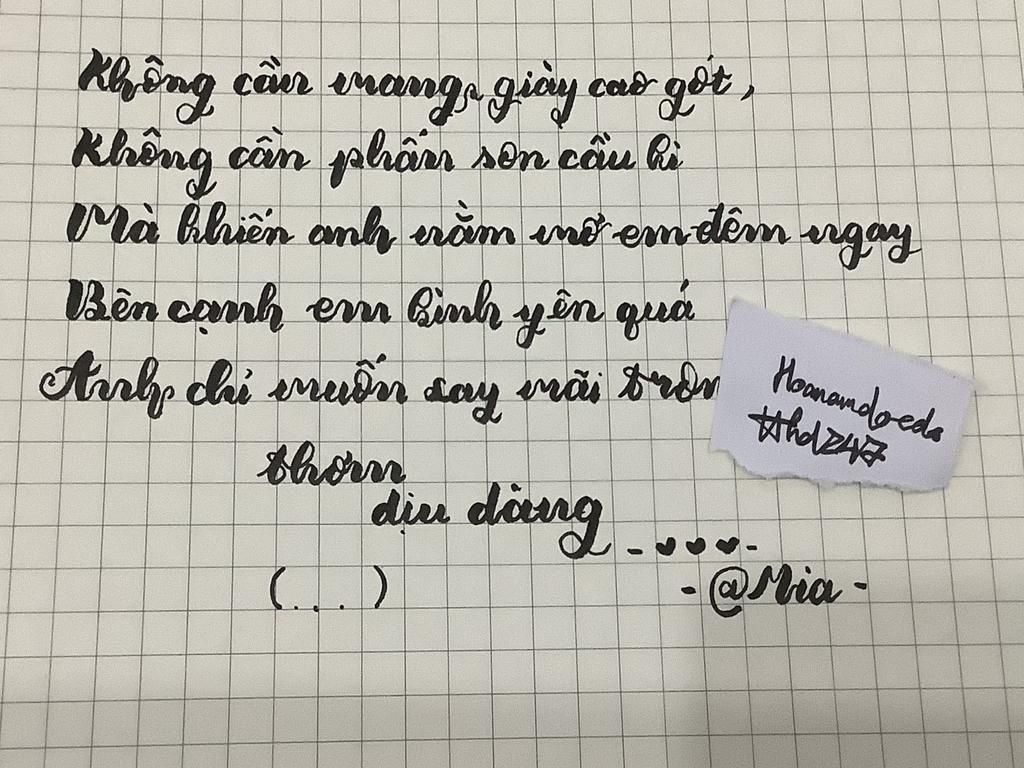 Không cần mang giày cao gót,
Không cần phấn son cầu kì
Mà khiến anh nằm mơ em đêm ngay
Bên cạnh em bình yên quá
Anh chỉ muốn say mãi
thơm
dịu dàng
(...)
- @Mia -
#hd247